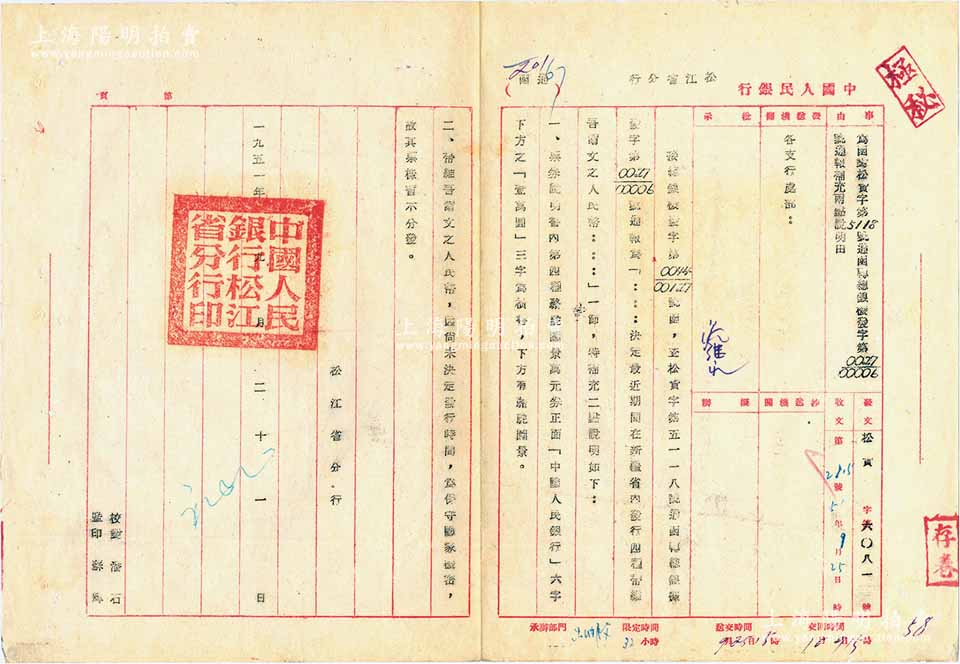 上海陽明拍賣
www.yangmingauction.com
極秘
中國人民銀行
松江省分行
(通函)
事由
為函知松貨字第5118號通函轉總銀機發字第0027/00006
號通報補充兩點說明由
發送機關
批示
各支行處部：
發文 松貨字第六〇八一號
收文第2815號
51年9月25日
抄送機關
擬辦
號函，查松貨字第五一一八號通函轉總銀機
發字第0027/00006號通報為「：：：決定最近期間在新疆省內發行四種帶維
吾爾文之人民幣：：：」一節，特補充二點說明如下：
一、票券說明書內第四種駱駝圖景萬元券正面「中國人民銀行」六字
下方之「壹萬圓」三字為橫行，下方有駱駝圖景。
存卷
交回時間
送交時間
限定時間
32小時
承辦部門
58
第 頁
二、帶維吾爾文之人民幣，因尚未決定發行時間，為保守國家機密，
故其票樣暫不分發。
松江省分行
一九五一年九月二十一日
中國人民
銀行松江
省分行印
校對
監印